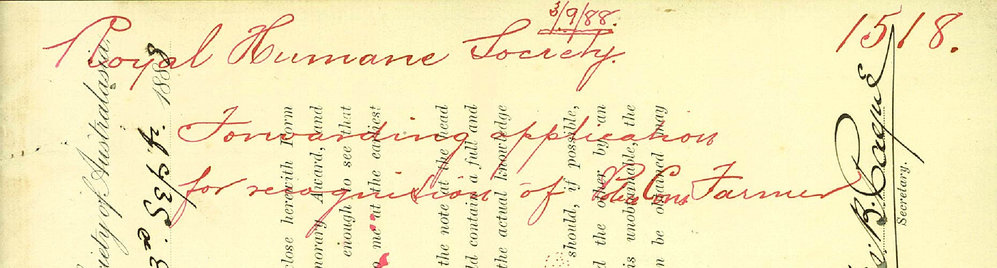 3/9/88.
Royal Humane Society.
1518.
Forwarding application
for recognition of Farmer
ciety of Australasia,
1888
close herewith Form
onorary Award, and
enough to see that
to me at the earliest
the note at the head
ld contain a full and
the actual knowledge
should, if possible,
d the other by an
is unobtainable, the
n be obtained may
Secretary.